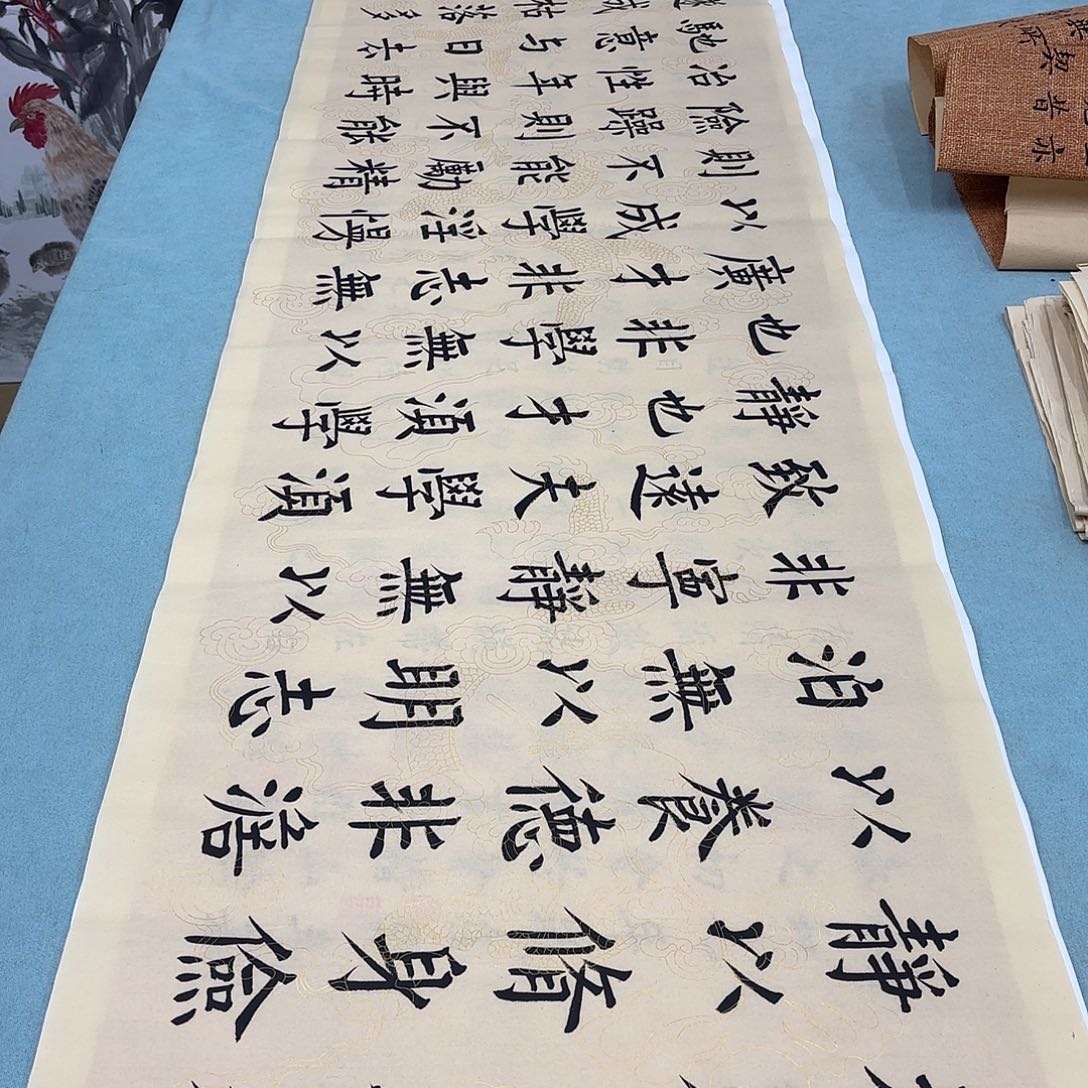 靜以脩身儉
以養德非澹
泊無以明志
非寧靜無以
致遠夫學須
靜也才須學
也非學無以
廣才非志無
以成學淫慢
則不能勵精
險躁則不能
治性年與時
馳意与日去
遂成枯落多